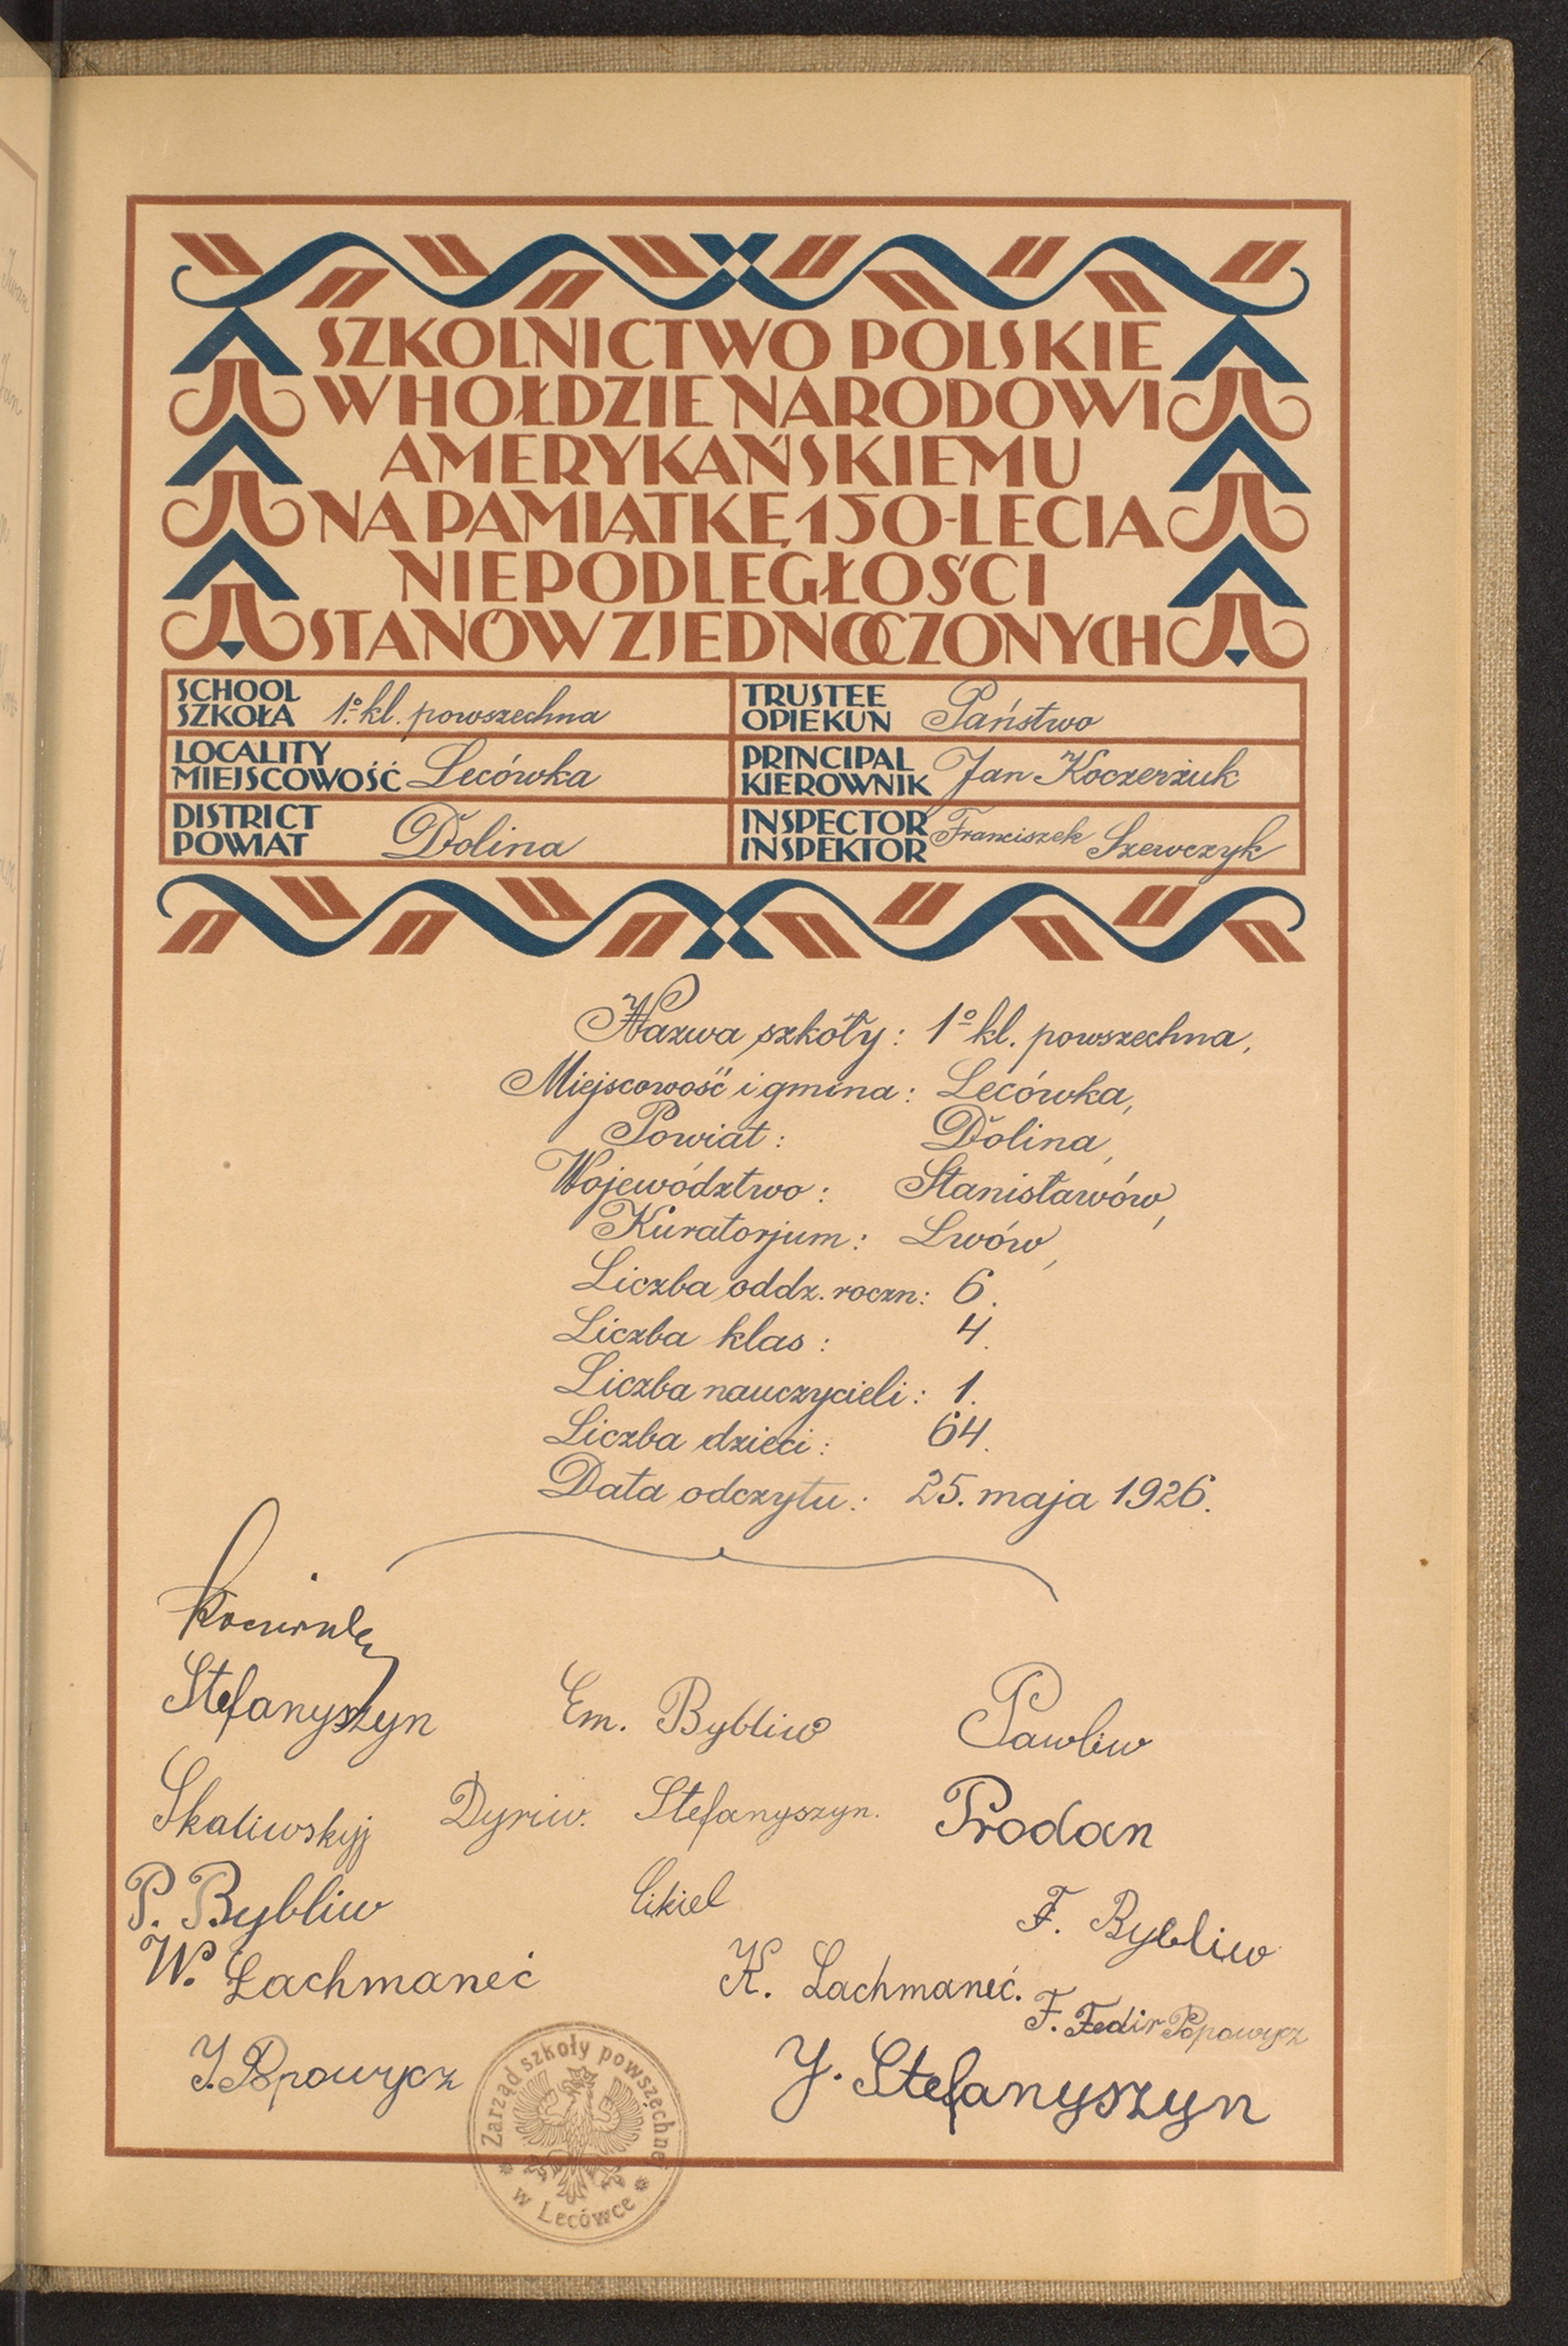 SZKOLNICTWO POLSKIE
W HOŁDZIE NARODOWI
AMERYKAŃSKIEMU
NA PAMIĄTKĘ 150-LECIA
NIEPODLEGŁOŚCI
STANÓW ZJEDNOCZONYCH
SCHOOL
SZKOŁA 1º kl. powszechna
TRUSTEE
OPIEKUN Państwo
LOCALITY
MIEJSCOWOŚĆ Lecówka
PRINCIPAL
KIEROWNIK Jan Koczerżuk
DISTRICT
POWIAT Dolina
INSPECTOR
INSPEKTOR Franciszek Szewczyk
Nazwa szkoły: 1º kl. powszechna,
Miejscowość i gmina: Lecówka,
Powiat: Dolina,
Województwo: Stanisławów,
Kuratorjum: Lwów,
Liczba oddz. roczn: 6.
Liczba klas: 4.
Liczba nauczycieli: 1.
Liczba dzieci: 64.
Data odczytu: 25. maja 1926.
Stefanyszyn Em. Bybliw Pawliw
Skaliwskyj Dyriw. Stefanyszyn. Prodan
P. Bybliw Cikiel F. Bybliw
W. Łachmaneć K. Lachmaneć.
F. Fedir Popowycz
J. Popowycz J. Stefanyszyn
Zarząd szkoły powszechnej
w Lecówce